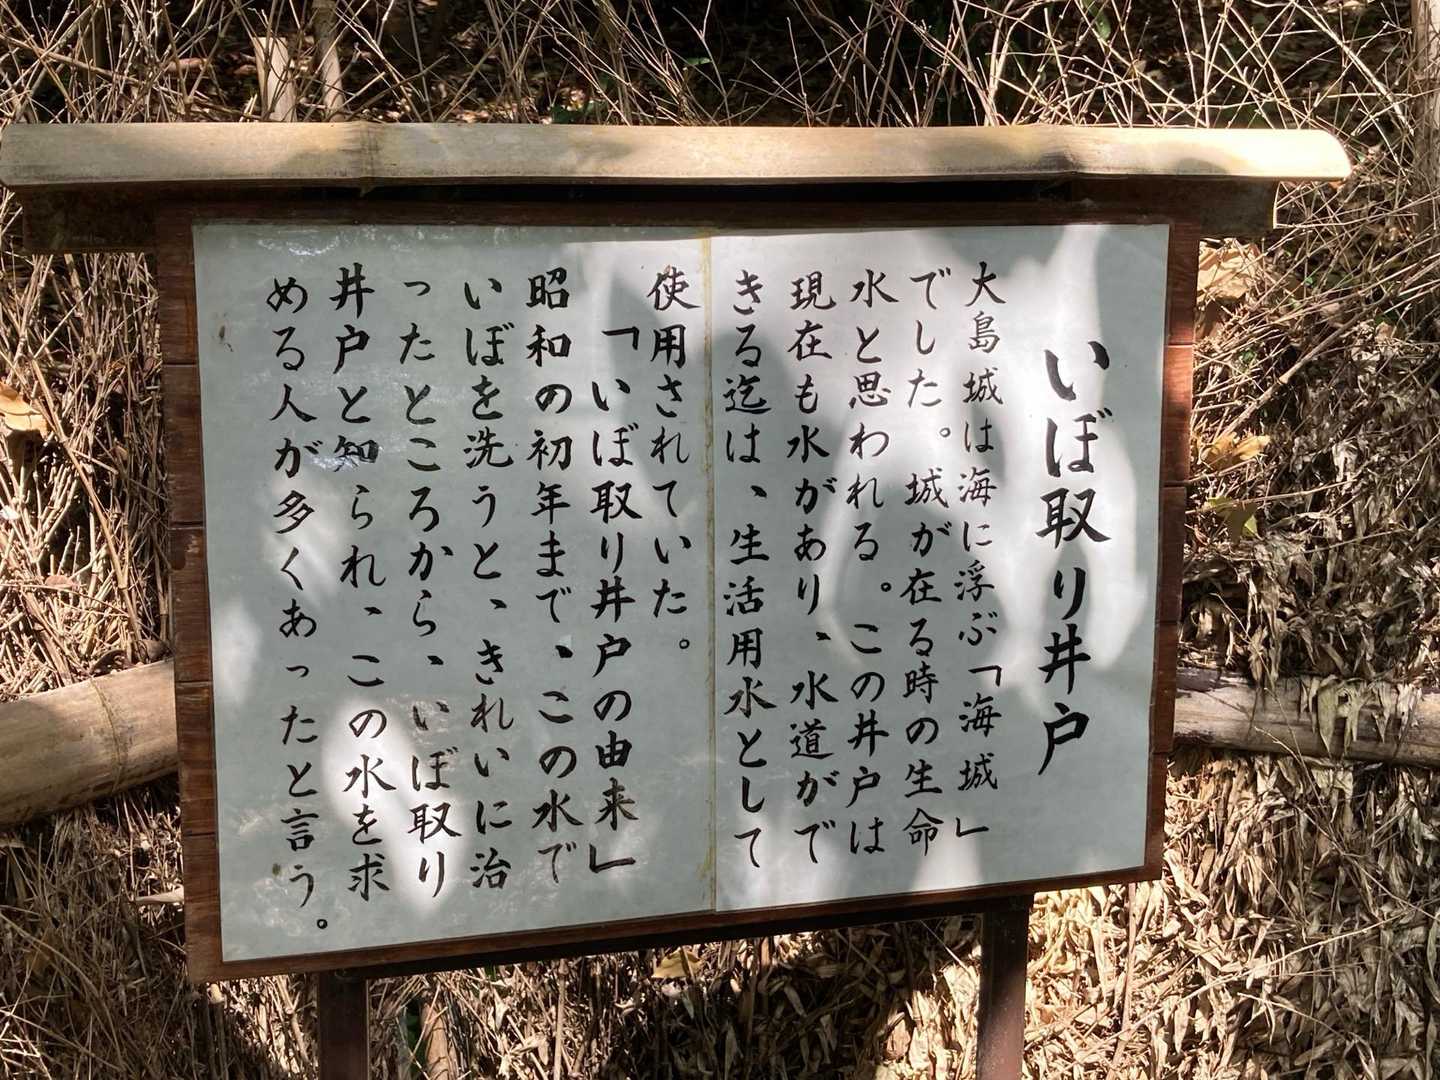 いぼ取り井戸
大島城は海に浮ぶ「海城」
でした。城が在る時の生命
水と思われる。この井戸は
現在も水があり、水道がで
きる迄は、生活用水として
使用されていた。
「いぼ取り井戸の由来」
昭和の初年まで、この水で
いぼを洗うと、きれいに治
ったところから、いぼ取り
井戸と知られ、この水を求
める人が多くあったと言う。